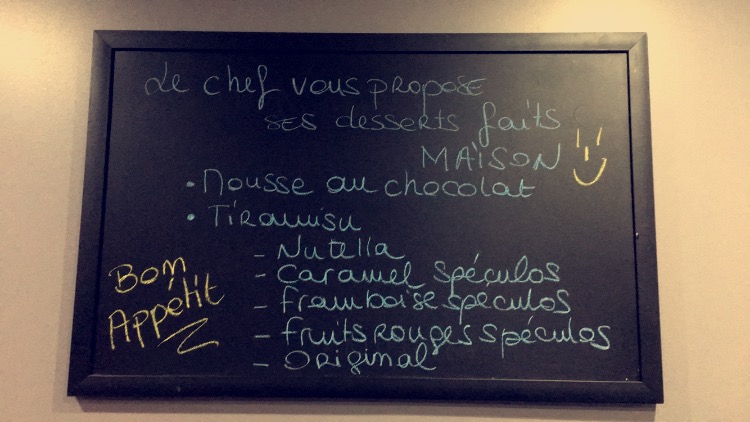 Le chef vous propose
ses desserts faits
MAISON
• Mousse au chocolat
• Tiramisu
- Nutella
- Caramel spéculos
- framboise spéculos
- fruits rouges spéculos
- Original
Bon
Appétit